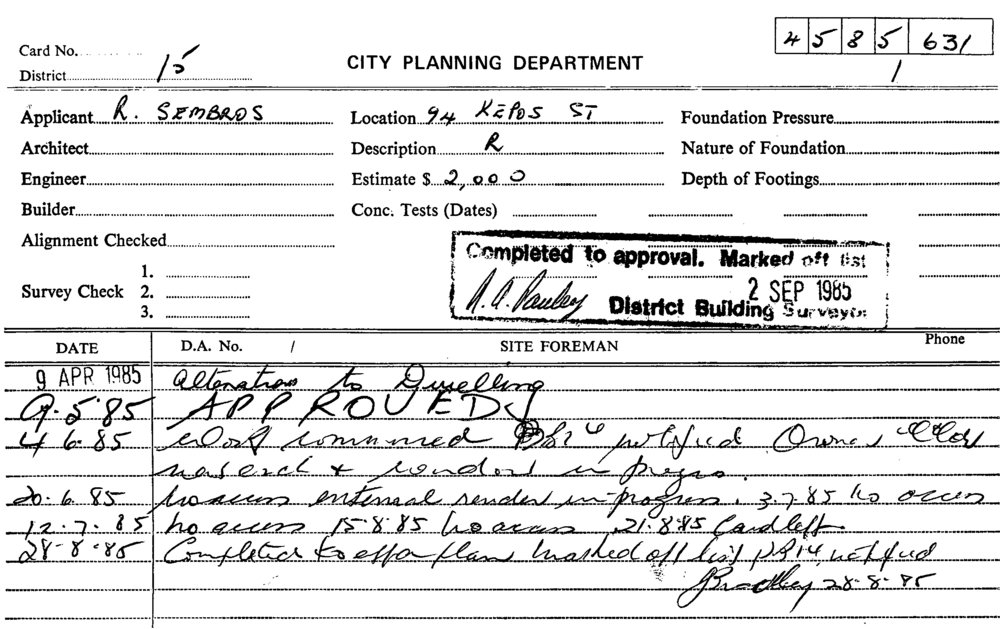 4 5 8 5 631
Card No.
1
District 15
CITY PLANNING DEPARTMENT
Applicant R. SEMBROS Location 94 KEPOS ST Foundation Pressure
Architect Description R Nature of Foundation
Engineer Estimate $ 2,000 Depth of Footings
Builder Conc. Tests (Dates)
Alignment Checked
Completed to approval. Marked off list
Survey Check 1. 2. 3.
2 SEP 1985
District Building Surveyor
DATE D.A. No. / SITE FOREMAN Phone
9 APR 1985 Alterations to Dwelling
9.5.85 APPROVED
4.6.85 Work commenced notified Owner
+ render in progress.
20.6.85 No access external render in progress. 3.7.85 no access
12.7.85 no access 15.8.85 no access 21.8.85 Card left
28.8.85 Completed to plan marked off list notified
Bradley 28.8.85